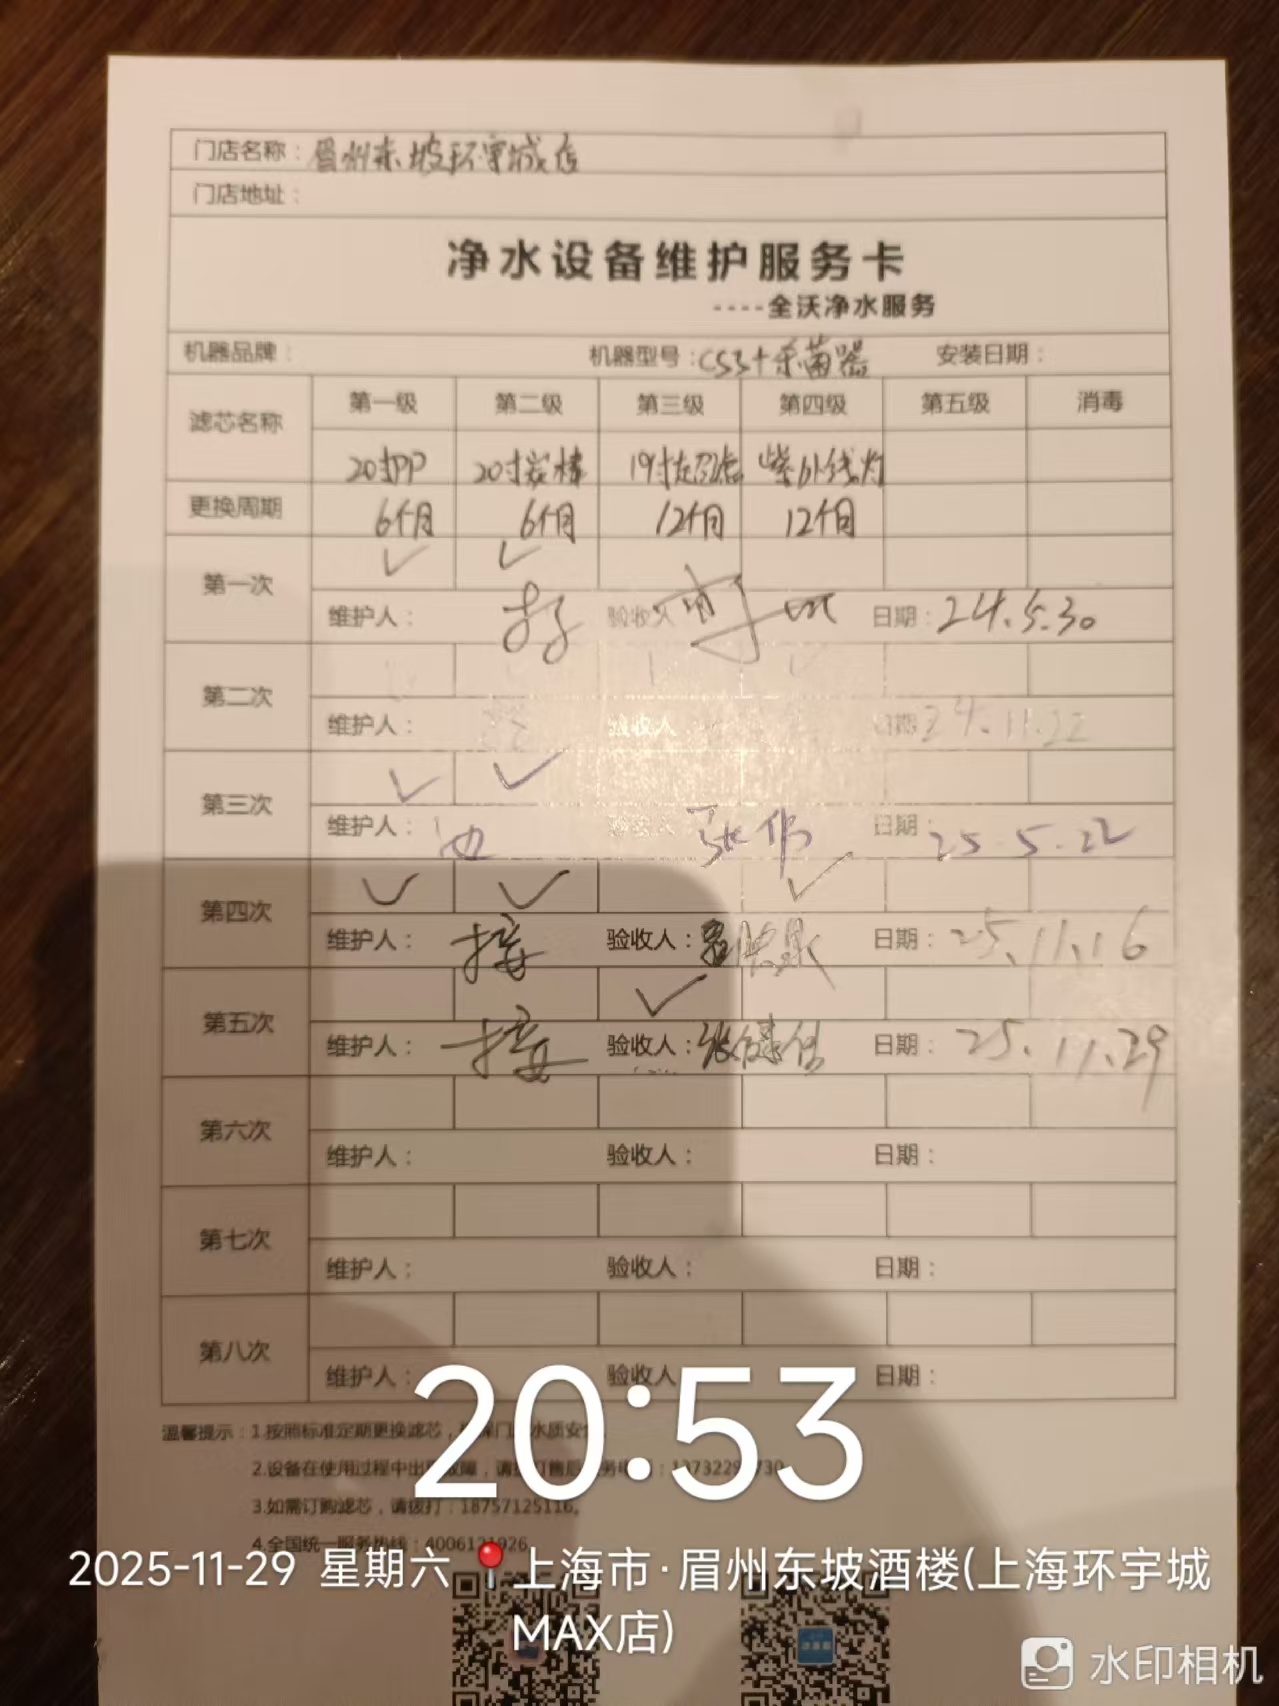 门店名称：眉州东坡环宇城店
门店地址：
净水设备维护服务卡
----全沃净水服务
机器品牌： 机器型号：CS3+杀菌器 安装日期：
滤芯名称 第一级 第二级 第三级 第四级 第五级 消毒
20寸PP 20寸炭棒 19寸 紫外线灯
更换周期 6个月 6个月 12个月 12个月
第一次 ✓ ✓
维护人： 验收人 日期：24.5.30
第二次
维护人： 验收人 日期 24.11.22
第三次 ✓ ✓
维护人： 验收人 张伟 日期：25.5.22
第四次 ✓ ✓ ✓
维护人：接 验收人： 日期：25.11.16
第五次 ✓
维护人：接 验收人： 日期：25.11.29
第六次
维护人： 验收人： 日期：
第七次
维护人： 验收人： 日期：
第八次
维护人： 验收人 日期：
温馨提示：1.按照标准定期更换滤芯，门 水质安
2.设备在使用过程中出 故障，请拨打售后 务电
3.如需订购滤芯，请拨打：18757125116。
4.全国统一服务热线：
20:53
2025-11-29 星期六 上海市·眉州东坡酒楼(上海环宇城
MAX店)
水印相机